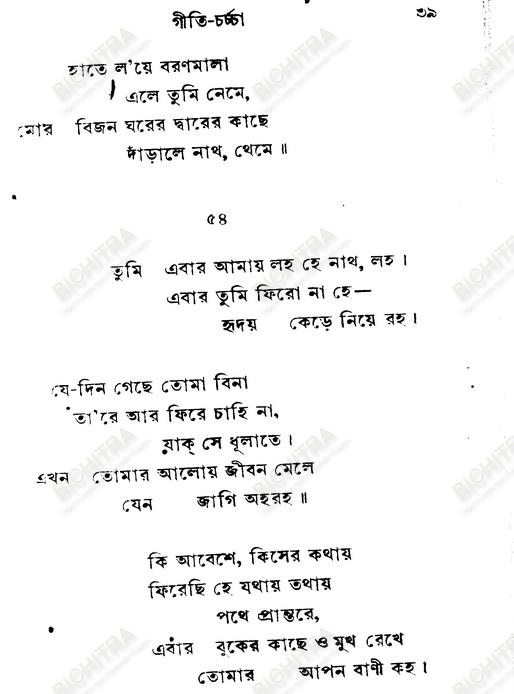 গীতি-চর্চ্চা ৩৯
হাতে ল'য়ে বরণমালা
এলে তুমি নেমে,
মোর বিজন ঘরের দ্বারের কাছে
দাঁড়ালে নাথ, থেমে ॥
৫৪
তুমি এবার আমায় লহ হে নাথ, লহ।
এবার তুমি ফিরো না হে—
হৃদয় কেড়ে নিয়ে রহ।
যে-দিন গেছে তোমা বিনা
তা'রে আর ফিরে চাহি না,
যাক্ সে ধূলাতে।
এখন তোমার আলোয় জীবন মেলে
যেন জাগি অহরহ ॥
কি আবেশে, কিসের কথায়
ফিরেছি হে যথায় তথায়
পথে প্রান্তরে,
এবার বুকের কাছে ও মুখ রেখে
তোমার আপন বাণী কহ।
BICHITRA